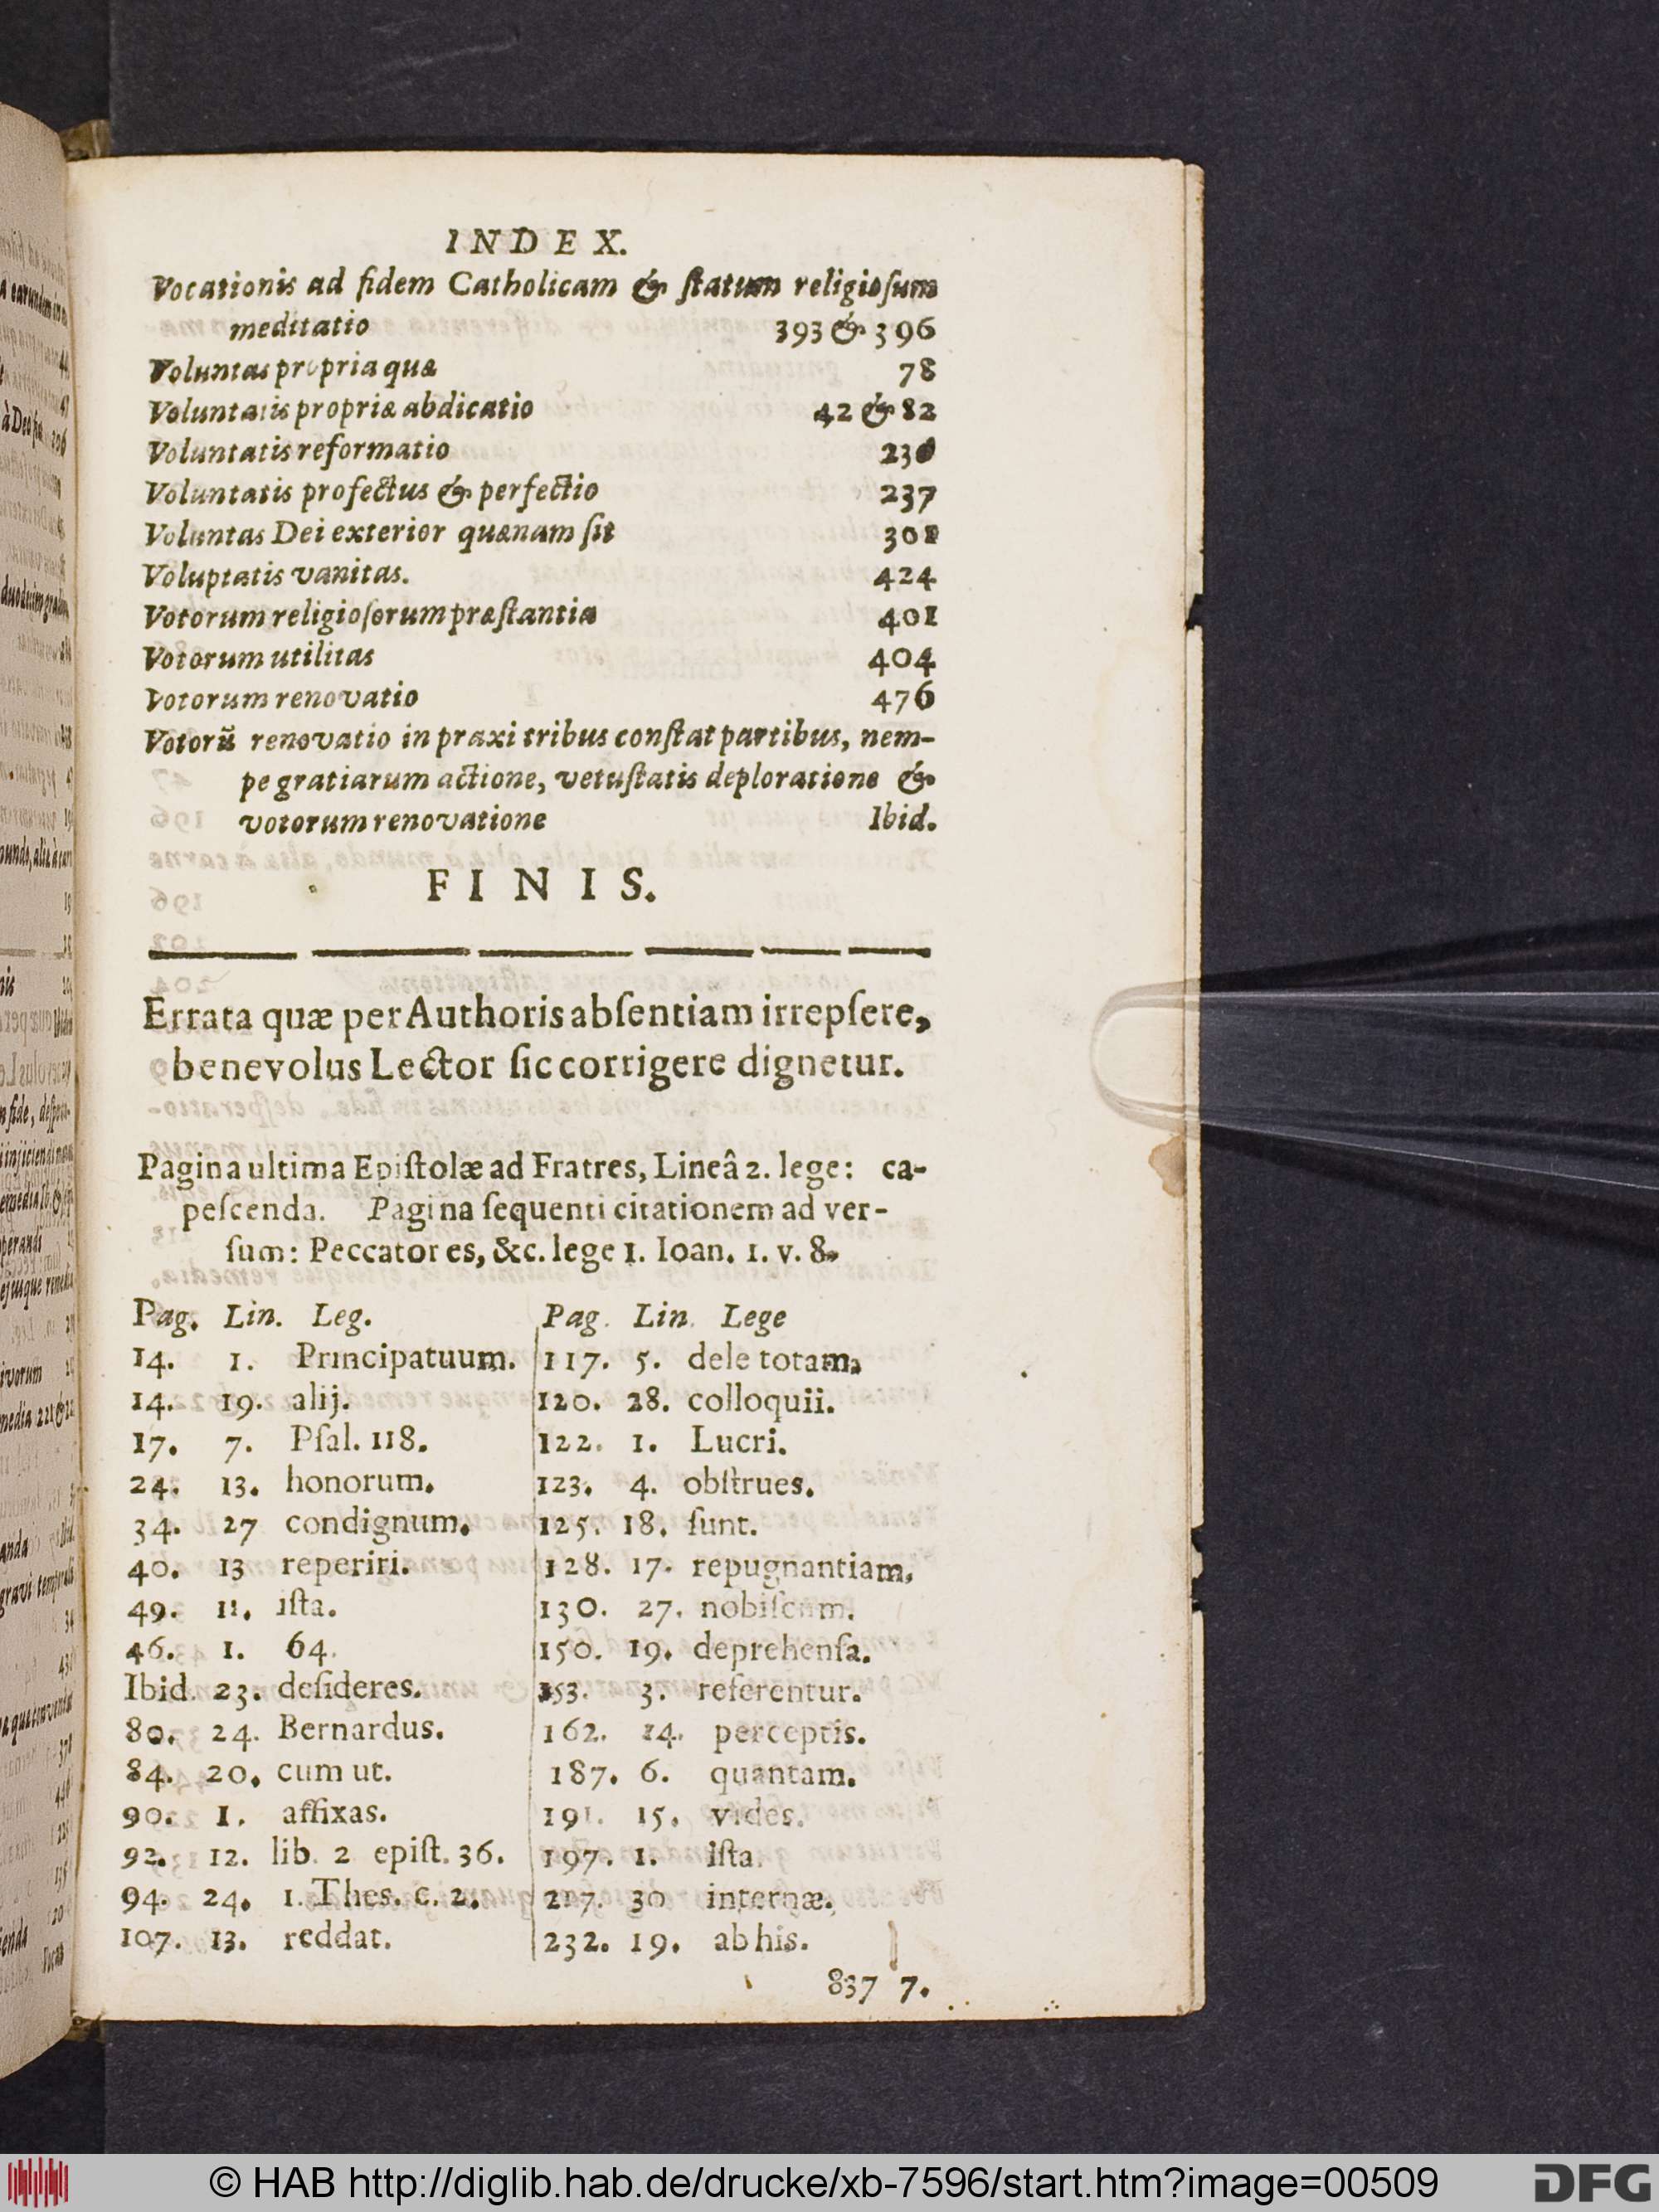 INDEX.
Vocationis ad fidem Catholicam & ſtatum religioſum
meditatio 393 & 396
Voluntas propria quæ 78
Voluntatis propriæ abdicatio 42 & 82
Voluntatis reformatio
Voluntatis profectus & perfectio 237
Voluntas Dei exterior quænam ſit 301
Voluptatis vanitas. 424
Votorum religioſorum præſtantia 401
Votorum utilitas 404
Votorum renovatio 476
Votorũ renovatio in praxi tribus conſtat partibus, nem-
pe gratiarum actione, vetuſtatis deploratione &
votorum renovatione Ibid.
FINIS.
Errata quæ per Authoris abſentiam irrepſere,
benevolus Lector ſic corrigere dignetur.
Pagina ultima Epiſtolæ ad Fratres, Lineâ 2. lege: ca-
peſcenda. Pagina ſequenti citationem ad ver-
ſum: Peccatores, &c. lege 1. Ioan. 1. v. 8.
Pag. Lin. Leg.
14. 1. Principatuum.
14. 19. alij.
17. 7. Pſal. 118.
24. 13. honorum.
34. 27 condignum.
40. 13 reperiri.
49. 11. iſta.
46. 1. 64.
Ibid. 23. deſideres.
80. 24. Bernardus.
84. 20. cum ut.
90. 1. affixas.
92. 12. lib. 2 epiſt. 36.
94. 24. 1. Theſ. c. 2.
107. 13. reddat.
Pag. Lin. Lege
117. 5. dele totam.
120. 28. colloquii.
122. 1. Lucri.
123. 4. obſtrues.
125. 18. ſunt.
128. 17. repugnantiam.
130. 27. nobiſcum.
150. 19. deprehenſa.
153. 3. referentur.
162. 14. perceptis.
187. 6. quantam.
191. 15. vides.
197. 1. iſta.
217. 30 internæ.
232. 19. ab his.
837 7.
© HAB http://diglib.hab.de/drucke/xb-7596/start.htm?image=00509
DFG